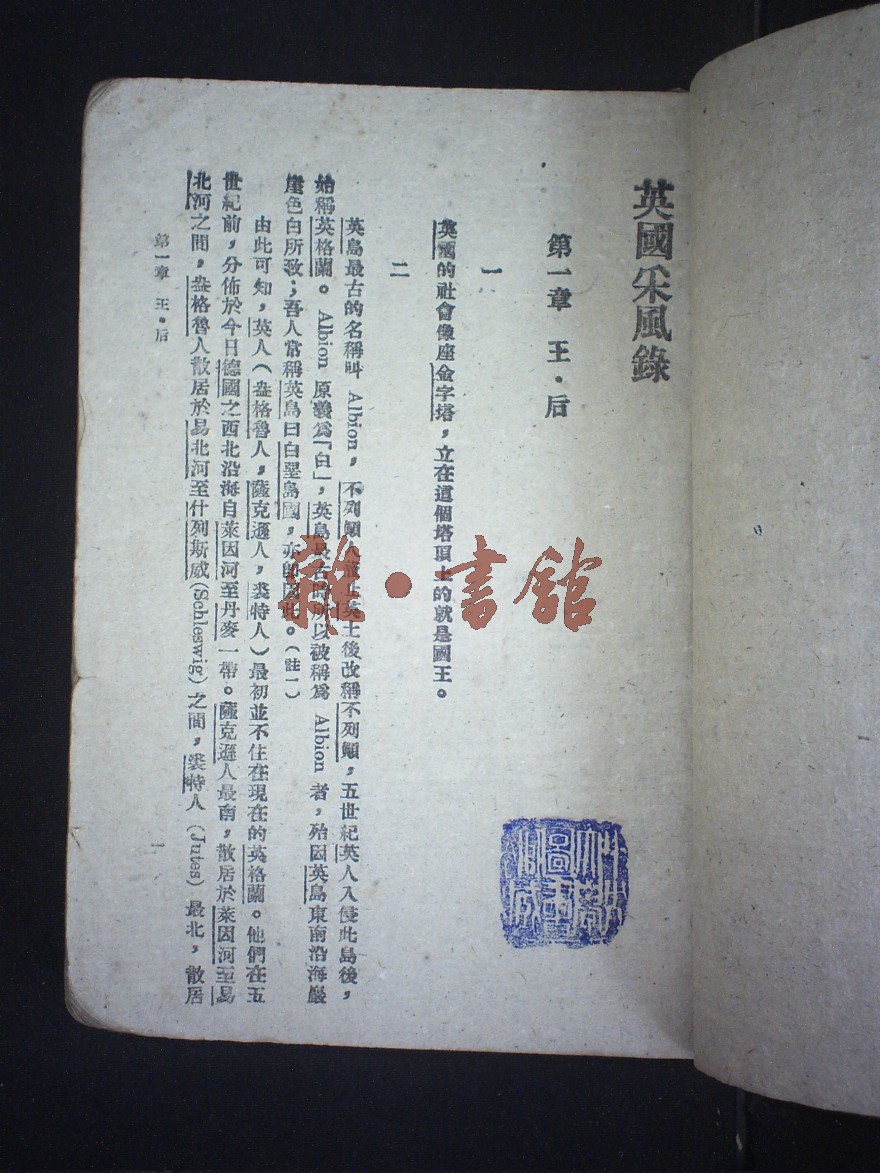 英國采風錄
第一章 王・后
一
英國的社會像座金字塔，立在這個塔頂上的就是國王。
二
英島最古的名稱叫 Albion，不列顛人 英土後改稱不列顛，五世紀英人入侵此島後，
始稱英格蘭。Albion 原義爲「白」，英島最古時所以被稱爲 Albion 者，殆因英島東南沿海巖
崖色白所致；吾人常稱英島曰白堊島國，亦卽因此。（註一）
由此可知，英人（盎格魯人，薩克遜人，裘特人）最初並不住在現在的英格蘭。他們在五
世紀前，分佈於今日德國之西北沿海自萊因河至丹麥一帶。薩克遜人最南，散居於萊因河至易
北河之間，盎格魯人散居於易北河至什列斯威(Schleswig)之間，裘特人（Jutes）最北，散居
第一章 王・后
一
雜・書館